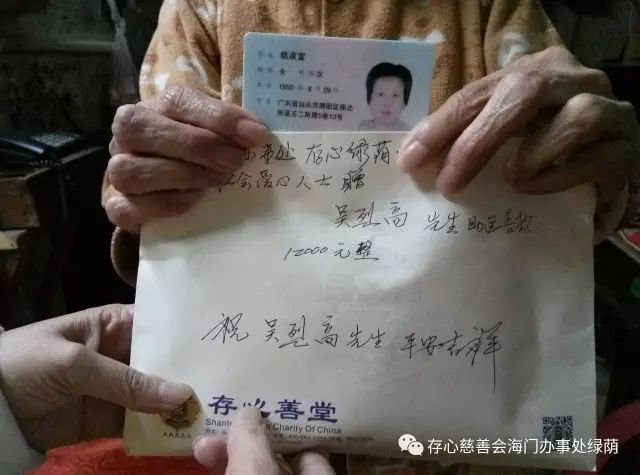 姓名 姚淑宣
女 民族 汉
1960 年 8 月 29
广东省汕头市潮阳区棉北
街道五二新厝5巷13号
事处 存心绿荫
社会爱心人士 赠
吴烈高 先生 善款
12000 元整
祝 吴烈高先生 平安吉祥
存心善堂
Charity Of China
AAAAA
存心慈善会海门办事处绿荫